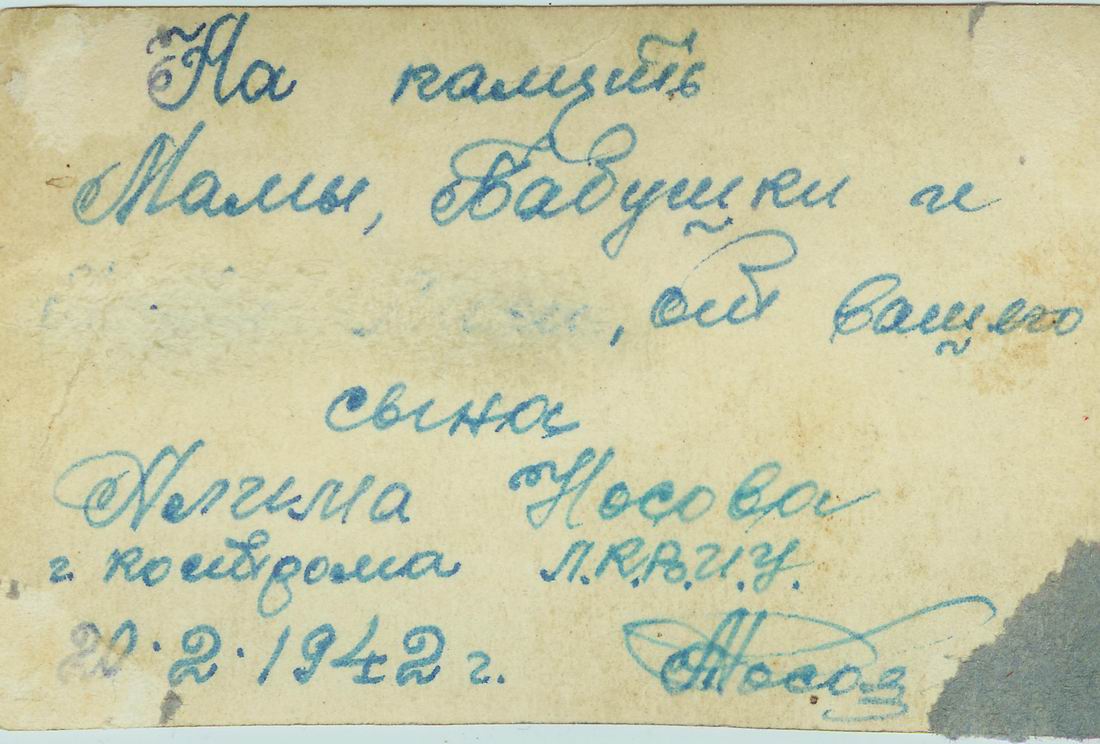 На память
Мамы, Бабушки и
, от вашего
сына
Алима Носова
г. кострома Л.К.В.И.У.
2.1942 г. Носов